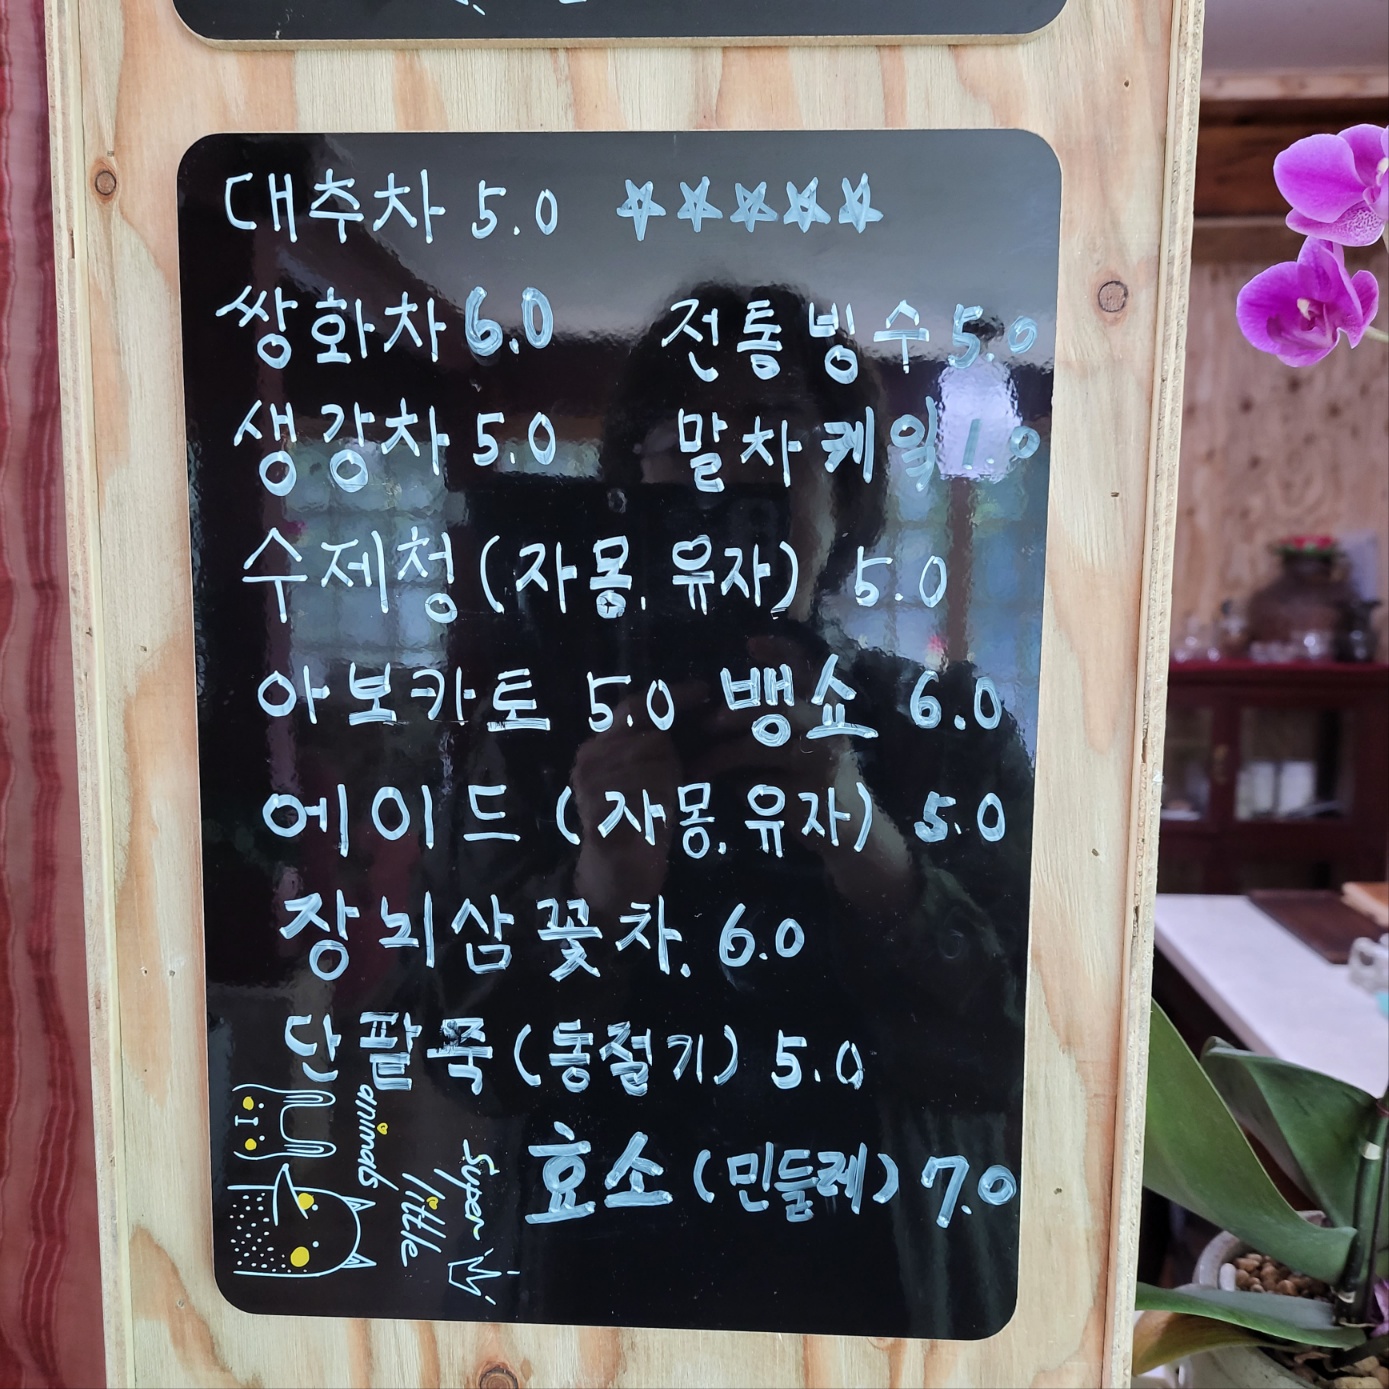 대추차 5.0 ☆☆☆☆☆
쌍화차 6.0 전통빙수 5.0
생강차 5.0 말차케잌 1.0
수제청 (자몽, 유자) 5.0
아보카토 5.0 뱅쇼 6.0
에이드 (자몽, 유자) 5.0
장뇌삼꽃차. 6.0
단팥죽 (동절기) 5.0
효소 (민들레) 7.0
super
little
animals